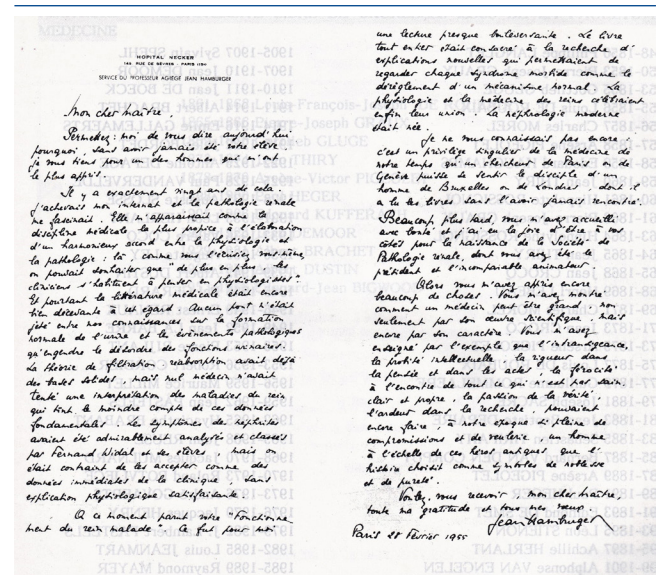 HOPITAL NECKER
149 RUE DE SÈVRES - PARIS
SERVICE DU PROFESSEUR AGRÉGÉ JEAN HAMBURGER
Mon cher maître,
Permettez-moi de vous dire aujourd'hui
pourquoi, sans avoir jamais été votre élève,
je vous tiens pour un des hommes qui m'ont
le plus appris.
Il y a exactement vingt ans de cela.
J'achevais mon internat et la pathologie rénale
me fascinait. Elle m'apparaissait comme la
discipline médicale la plus propice à l'élaboration
d'un harmonieux accord entre la physiologie et
la pathologie : là, comme vous l'écriviez vous-même,
on pouvait souhaiter que "de plus en plus les
cliniciens s'habituent à penser en physiologistes".
Et pourtant la littérature médicale était encore
bien décevante à cet égard. Aucun pont n'était
jeté entre nos connaissances sur la formation
normale de l'urine et les événements pathologiques
qu'engendre le désordre des fonctions urinaires.
La théorie de filtration-réabsorption avait déjà
des bases solides, mais nul médecin n'avait
tenté une interprétation des maladies du rein
qui tînt le moindre compte de ces données
fondamentales. Les symptômes des néphrites
avaient été admirablement analysés et classés
par Fernand Widal et ses élèves, mais on
était contraint de les accepter comme des
données immédiates de la clinique, sans
explication physiologique satisfaisante.
A ce moment parut votre "Fonctionne
ment du rein malade". Ce fut pour moi
une lecture presque bouleversante. Le livre
tout entier était consacré à la recherche d'
explications nouvelles qui permettaient de
regarder chaque syndrome morbide comme le
dérèglement d'un mécanisme normal. La
physiologie et la médecine des reins célébraient
enfin leur union. La néphrologie moderne
était née.
Je ne vous connaissais pas encore :
c'est un privilège singulier de la médecine de
notre temps qu'un chercheur de Paris ou de
Genève puisse se sentir le disciple d'un
homme de Bruxelles ou de Londres, dont il
a lu les livres sans l'avoir jamais rencontré.
Beaucoup plus tard, vous m'avez accueilli
avec bonté et j'ai eu la joie d'être à vos
côtés pour la naissance de la Société de
Pathologie rénale, dont vous avez été le
président et l'incomparable animateur.
Alors vous m'avez appris encore
beaucoup de choses. Vous m'avez montré
comment un médecin peut être grand, non
seulement par son œuvre scientifique, mais
encore par son caractère. Vous m'avez
enseigné par l'exemple que l'intransigeance,
la probité intellectuelle, la rigueur dans
la pensée et dans les actes, la férocité
à l'encontre de tout ce qui n'est pas sain,
clair et propre, la passion de la vérité,
l'ardeur dans la recherche, pouvaient
encore faire, à notre époque si pleine de
compromissions et de veulerie, un homme
à l'échelle de ces héros antiques que l'
histoire choisit comme symboles de noblesse
et de pureté.
Voulez-vous recevoir, mon cher maître,
toute ma gratitude et tous mes vœux.
Jean Hamburger
Paris 28 Février 1955